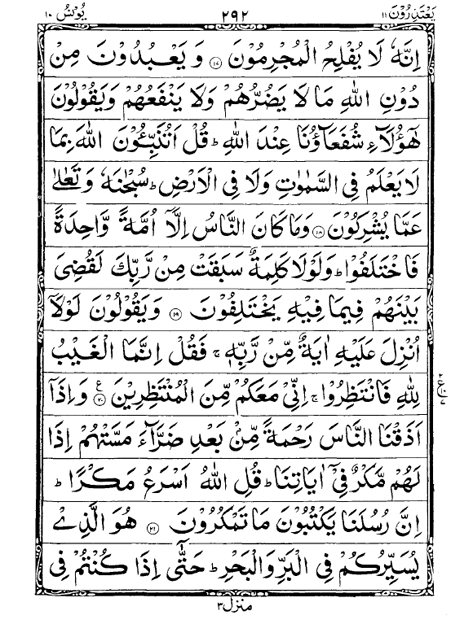 يَعْتَذِرُوْنَ ١١ ٢٩٢ يُوْنُس ١٠
اِنَّهٗ لَا يُفْلِحُ الْمُجْرِمُوْنَ ﴿۱۷﴾ وَ يَعْبُدُوْنَ مِنْ
دُوْنِ اللّٰهِ مَا لَا يَضُرُّهُمْ وَلَا يَنْفَعُهُمْ وَيَقُوْلُوْنَ
هٰٓؤُلَآءِ شُفَعَآؤُنَا عِنْدَ اللّٰهِ ؕ قُلْ اَتُنَبِّـُٔوْنَ اللّٰهَ بِمَا
لَا يَعْلَمُ فِى السَّمٰوٰتِ وَلَا فِى الْاَرْضِ ؕ سُبْحٰنَهٗ وَ تَعٰلٰى
عَمَّا يُشْرِكُوْنَ ﴿۱۸﴾ وَمَا كَانَ النَّاسُ اِلَّاۤ اُمَّةً وَّاحِدَةً
فَاخْتَلَفُوْا ؕ وَلَوْلَا كَلِمَةٌ سَبَقَتْ مِنْ رَّبِّكَ لَقُضِىَ
بَيْنَهُمْ فِيْمَا فِيْهِ يَخْتَلِفُوْنَ ﴿۱۹﴾ وَيَقُوْلُوْنَ لَوْلَاۤ
اُنْزِلَ عَلَيْهِ اٰيَةٌ مِّنْ رَّبِّهٖ ۚ فَقُلْ اِنَّمَا الْغَيْبُ
لِلّٰهِ فَانْتَظِرُوْا ۚ اِنِّىْ مَعَكُمْ مِّنَ الْمُنْتَظِرِيْنَ ﴿۲۰﴾ ع وَاِذَاۤ
اَذَقْنَا النَّاسَ رَحْمَةً مِّنْۢ بَعْدِ ضَرَّآءَ مَسَّتْهُمْ اِذَا
لَهُمْ مَّكْرٌ فِىْۤ اٰيَاتِنَا ؕ قُلِ اللّٰهُ اَسْرَعُ مَكْرًا ؕ
اِنَّ رُسُلَنَا يَكْتُبُوْنَ مَا تَمْكُرُوْنَ ﴿۲۱﴾ هُوَ الَّذِىْ
يُسَيِّرُكُمْ فِى الْبَرِّ وَالْبَحْرِ ؕ حَتّٰۤى اِذَا كُنْتُمْ فِى
منزل ٣